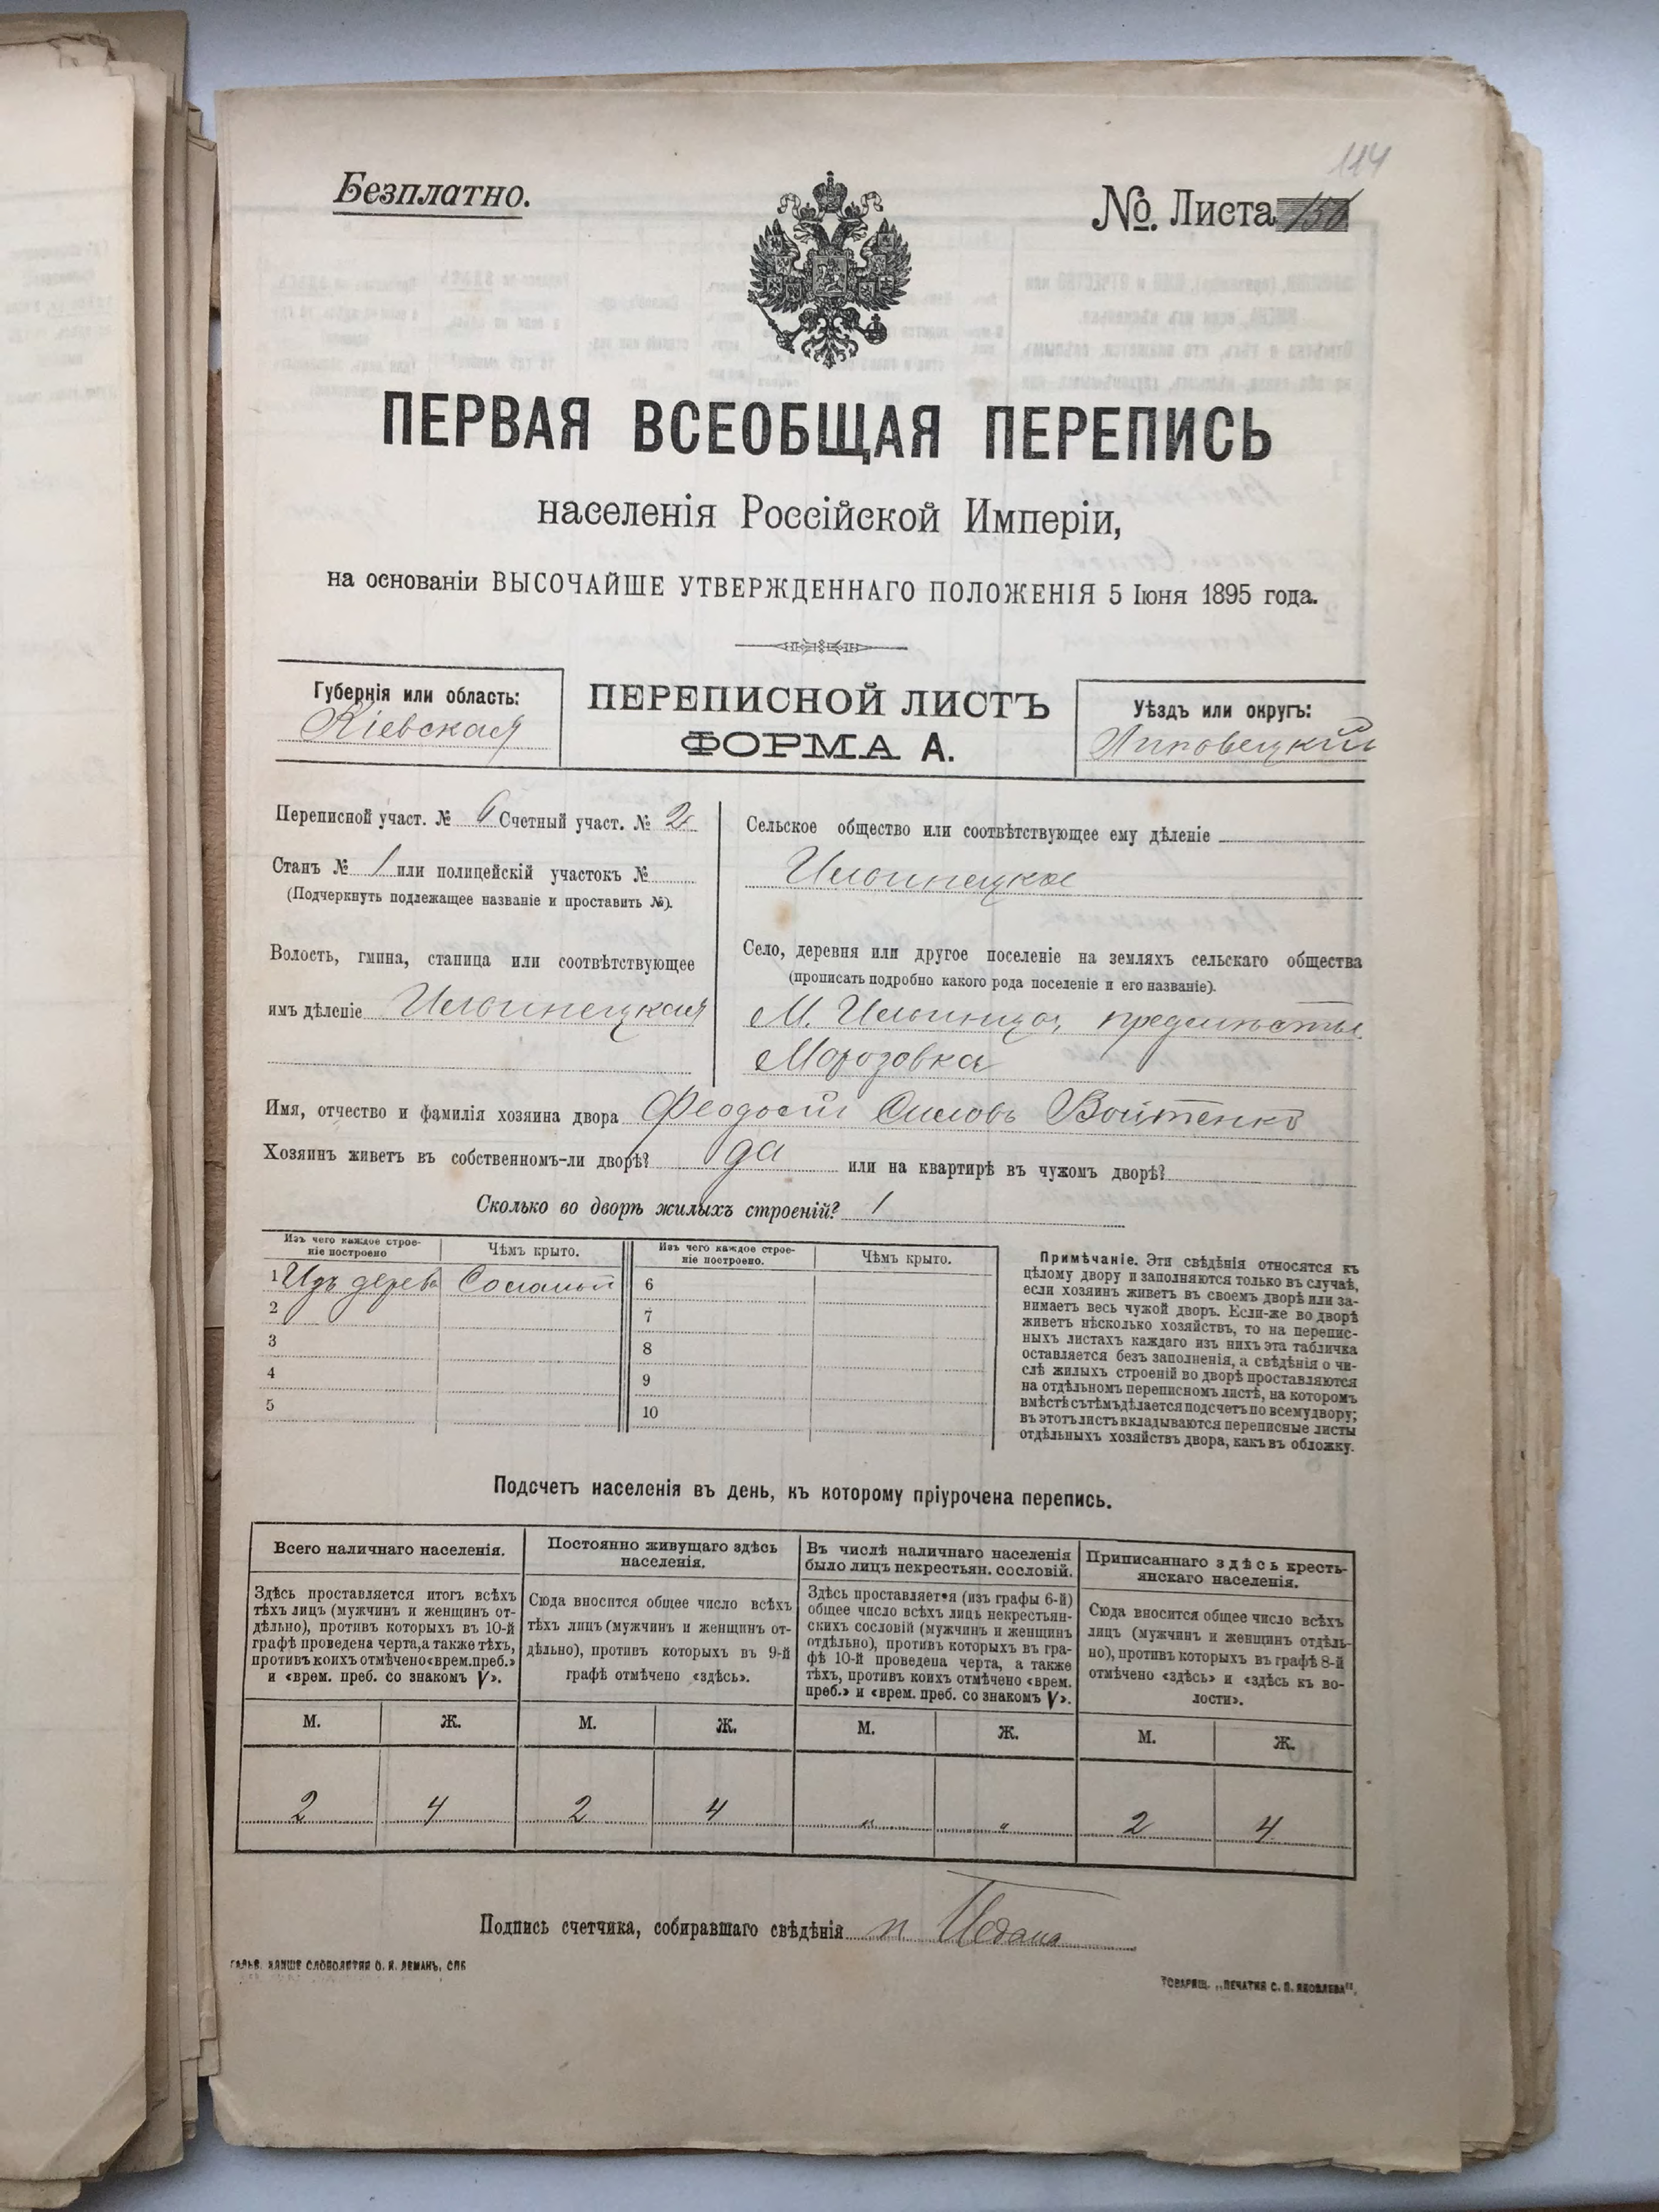 114
Безплатно.
№. Листа
ПЕРВАЯ ВСЕОБЩАЯ ПЕРЕПИСЬ
населенія Россійской Имперіи,
на основаніи ВЫСОЧАЙШЕ УТВЕРЖДЕННАГО ПОЛОЖЕНІЯ 5 Іюня 1895 года.
Губернія или область:
Кіевская
ПЕРЕПИСНОЙ ЛИСТЪ
ФОРМА А.
Уѣздъ или округъ:
Липовецкій
Переписной участ. № 6 Счетный участ. № 2
Станъ № 1 или полицейскій участокъ №
(Подчеркнуть подлежащее названіе и проставить №).
Волость, гмина, станица или соотвѣтствующее
имъ дѣленіе Ильинецкая
Сельское общество или соотвѣтствующее ему дѣленіе
Ильинецкое
Село, деревня или другое поселеніе на земляхъ сельскаго общества
(прописать подробно какого рода поселеніе и его названіе).
М. Ильинцы, предмѣстье
Морозовка
Имя, отчество и фамилія хозяина двора Феодосій Силовъ Войтенко
Хозяинъ живетъ въ собственномъ-ли дворѣ? да или на квартирѣ въ чужомъ дворѣ?
Сколько во дворѣ жилыхъ строеній? 1
Изъ чего каждое строе-
ніе построено
Чѣмъ крыто.
Изъ чего каждое строе-
ніе построено.
Чѣмъ крыто.
1 Изъ дерева Соломой 6
2 7
3 8
4 9
5 10
Примѣчаніе. Эти свѣдѣнія относятся къ
цѣлому двору и заполняются только въ случаѣ,
если хозяинъ живетъ въ своемъ дворѣ или за-
нимаетъ весь чужой дворъ. Если-же во дворѣ
живетъ нѣсколько хозяйствъ, то на перепис-
ныхъ листахъ каждаго изъ нихъ эта табличка
оставляется безъ заполненія, а свѣдѣнія о чи-
слѣ жилыхъ строеній во дворѣ проставляются
на отдѣльномъ переписномъ листѣ, на которомъ
вмѣстѣ съ тѣмъ дѣлается подсчетъ по всему двору;
въ этотъ листъ вкладываются переписные листы
отдѣльныхъ хозяйствъ двора, какъ въ обложку.
Подсчетъ населенія въ день, къ которому пріурочена перепись.
Всего наличнаго населенія.
Здѣсь проставляется итогъ всѣхъ
тѣхъ лицъ (мужчинъ и женщинъ от-
дѣльно), противъ которыхъ въ 10-й
графѣ проведена черта, а также тѣхъ,
противъ коихъ отмѣчено «врем. преб.»
и «врем. преб. со знакомъ V».
Постоянно живущаго здѣсь
населенія.
Сюда вносится общее число всѣхъ
тѣхъ лицъ (мужчинъ и женщинъ от-
дѣльно), противъ которыхъ въ 9-й
графѣ отмѣчено «здѣсь».
Въ числѣ наличнаго населенія
было лицъ некрестьян. сословій.
Здѣсь проставляется (изъ графы 6-й)
общее число всѣхъ лицъ некрестьян-
скихъ сословій (мужчинъ и женщинъ
отдѣльно), противъ которыхъ въ гра-
фѣ 10-й проведена черта, а также
тѣхъ, противъ коихъ отмѣчено «врем.
преб.» и «врем. преб. со знакомъ V».
Приписаннаго здѣсь кресть-
янскаго населенія.
Сюда вносится общее число всѣхъ
лицъ (мужчинъ и женщинъ отдѣль-
но), противъ которыхъ въ графѣ 8-й
отмѣчено «здѣсь» и «здѣсь къ во-
лости».
М. Ж. М. Ж. М. Ж. М. Ж.
2 4 2 4 " " 2 4
Подпись счетчика, собиравшаго свѣдѣнія
ГАЛЬВ. КЛИШЕ СЛОВОЛИТНИ О. И. ЛЕМАНЪ, СПБ
ТОВАРИЩ. „ПЕЧАТНЯ С. П. ЯКОВЛЕВА".